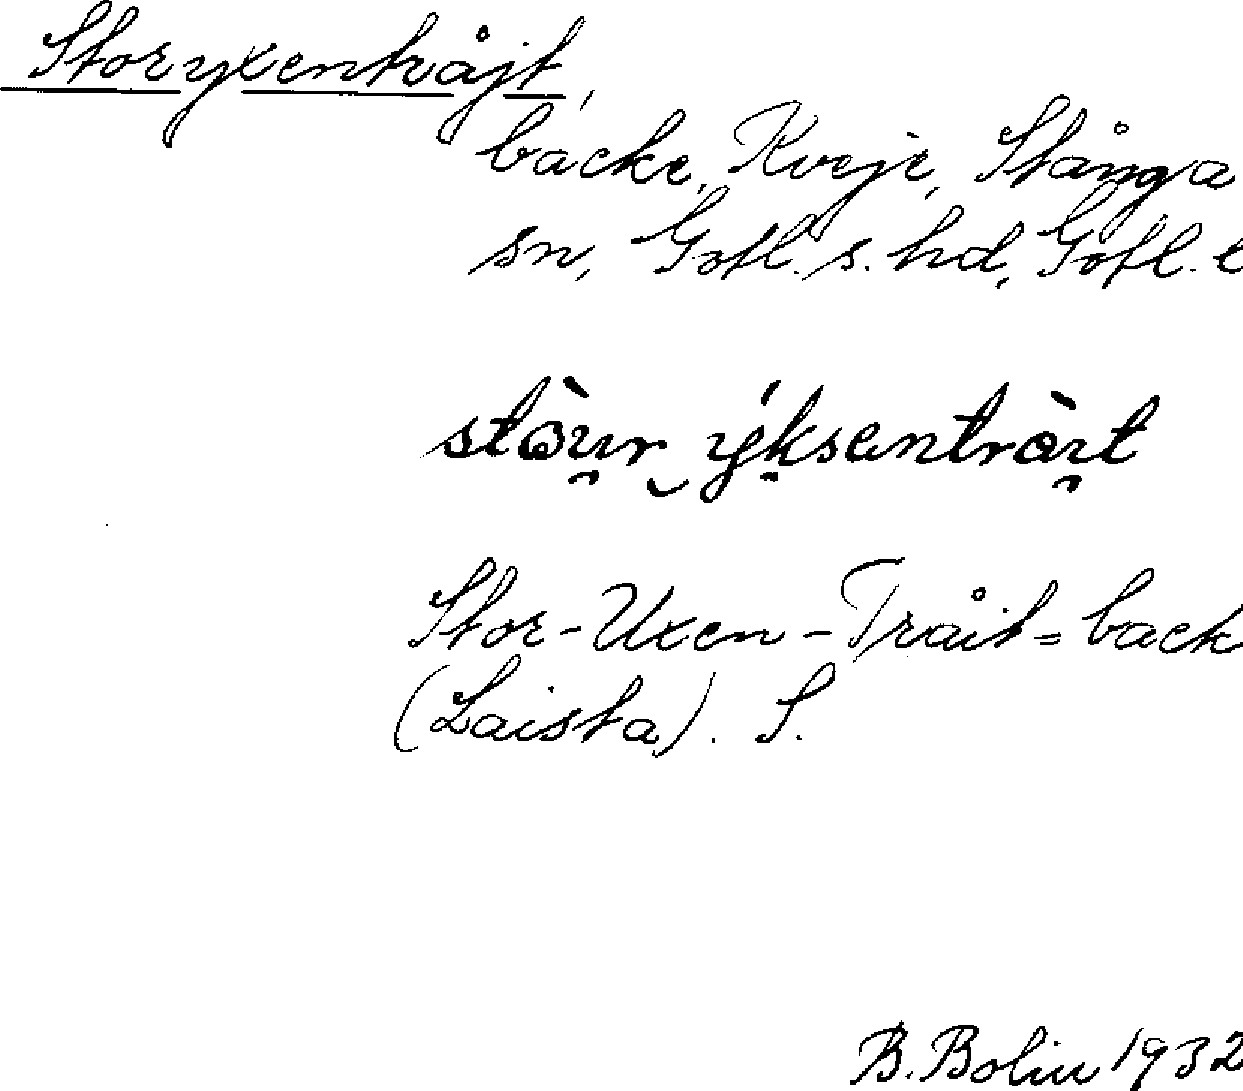 Storyxentråjt,
backe, Kveje, Stånga
sn, Gotl. s. hd, Gotl. l
stòur ýksentràit
Stor-Uxen-Tråit=back
(Laista). S.
B. Bolin 1932